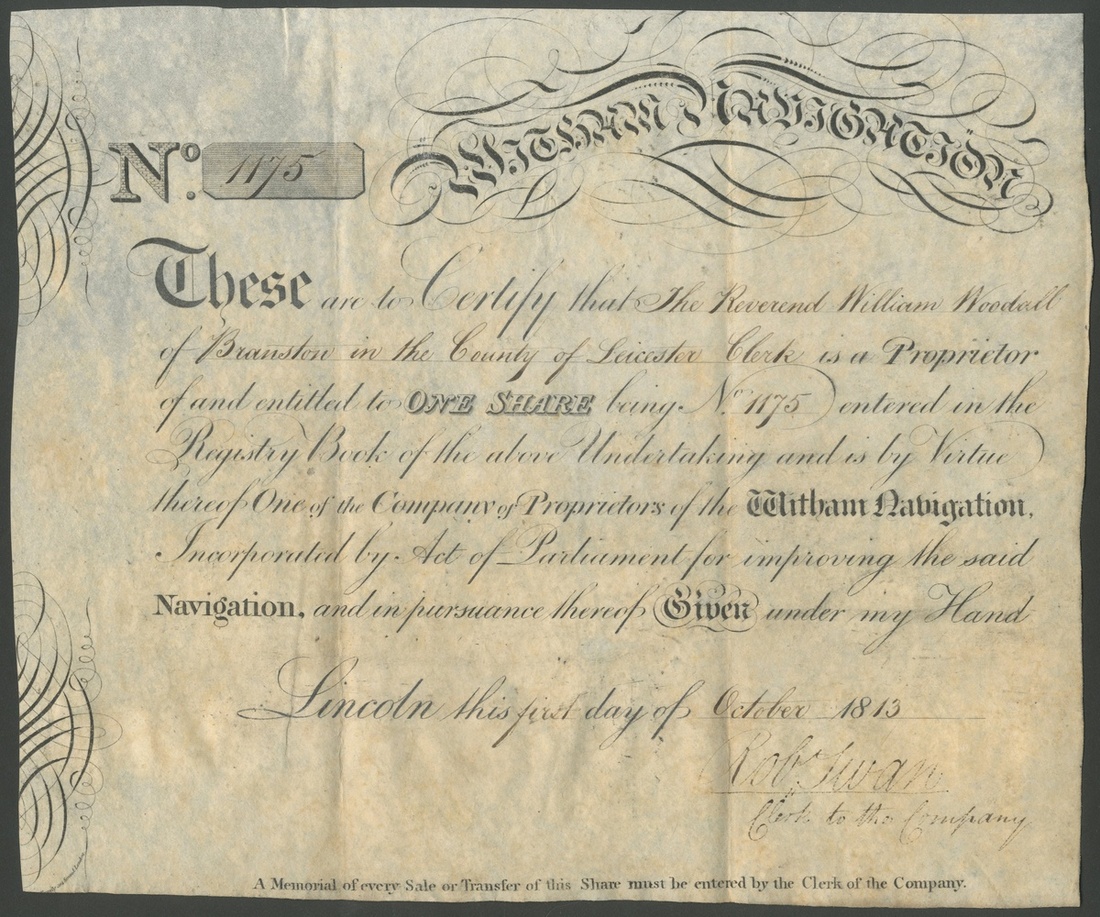 WITHAM NAVIGATION
No. 1175
These are to Certify that The Reverend William Woodall
of Branston in the County of Leicester Clerk is a Proprietor
of and entitled to ONE SHARE being No. 1175 entered in the
Registry Book of the above Undertaking and is by Virtue
thereof One of the Company of Proprietors of the Witham Navigation,
Incorporated by Act of Parliament for improving the said
Navigation, and in pursuance thereof Given under my Hand
Lincoln this first day of October 1813
Robt Swan
Clerk to the Company
A Memorial of every Sale or Transfer of this Share must be entered by the Clerk of the Company.